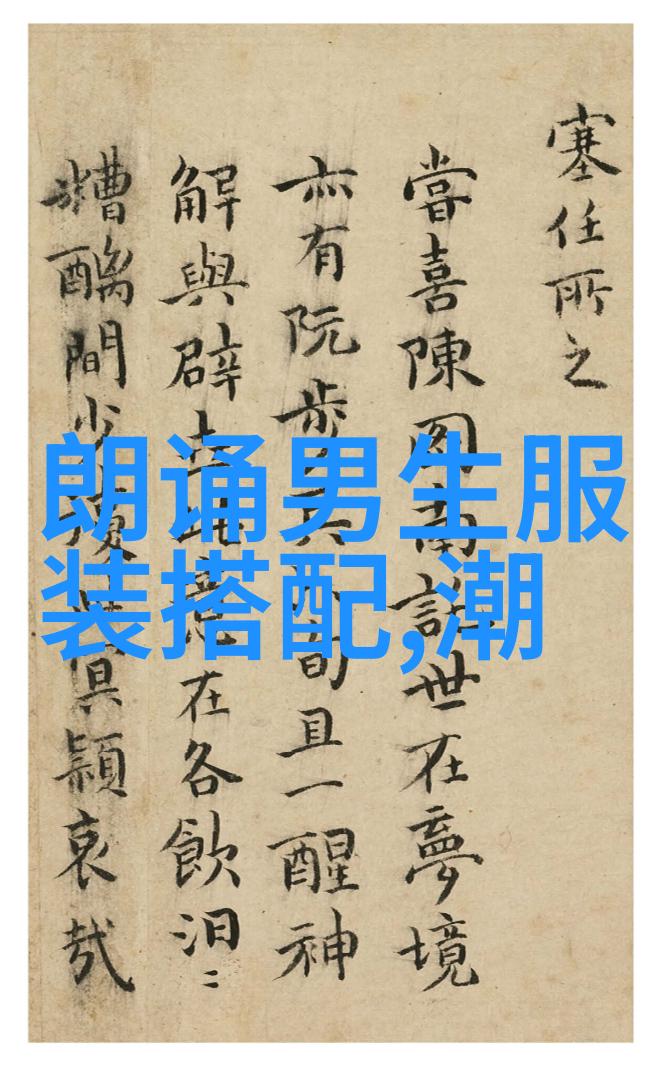 朗诵男生服
装搭配,潮
塞任所之
嘗喜陳世在夢境
亦有阮步旬且一醒神
解與辟意在各飲汩〻
糟醨間少哀哉